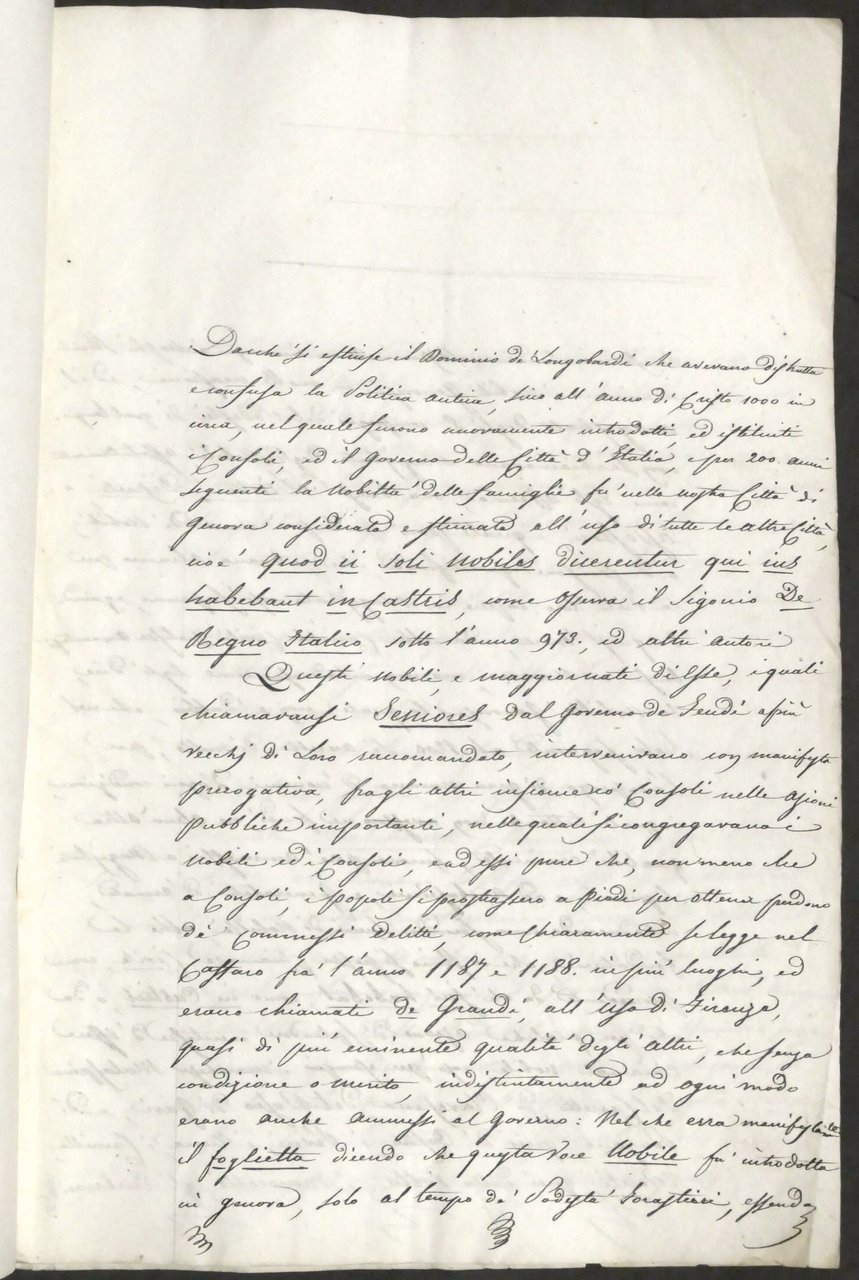 Dacché si estinse il Dominio de' Longobardi che avevano distrutta
e confusa la Politica antica, sino all'anno di Cristo 1000 in
circa, nel quale furono nuovamente introdotti, ed istituiti
i Consoli, ed il Governo delle Città d'Italia, e per 200. anni
seguenti la Nobiltà delle Famiglie fu' nella nostra Città di
Genova considerata e stimata all'uso di tutte le altre Città,
cioè quod ii soli nobiles dicerentur qui ius
habebant in Castris, come osserva il Sigonio De
Regno Italico sotto l'anno 973., ed altri autori
Questi nobili, e maggiornati di Esse, i quali
chiamavansi Seniores dal Governo de Feudi a più
vecchj di Loro raccomandato, intervenivano con manifesta
prerogativa, fragli altri insieme co' Consoli nelle Azioni
Pubbliche importanti, nelle quali si congregavano i
Nobili ed i Consoli, e ad essi pure che, non meno che
a Consoli, i popoli si prostassero a Piedi per ottener perdono
de' Commessi Delitti, come Chiaramente se legge nel
Caffaro fra' l'anno 1187 e 1188. in più luoghi, ed
erano chiamati de Grandi, all'Uso di Firenze,
quasi di più eminente qualità degli altri, che senza
condizione o merito, indistintamente ad ogni modo
erano anche ammessi al Governo: Nel che erra manifestam.te
il foglietta dicendo che questa voce Nobile fu' introdotta
in Genova, solo al tempo de' Podestà Forastieri, essendo